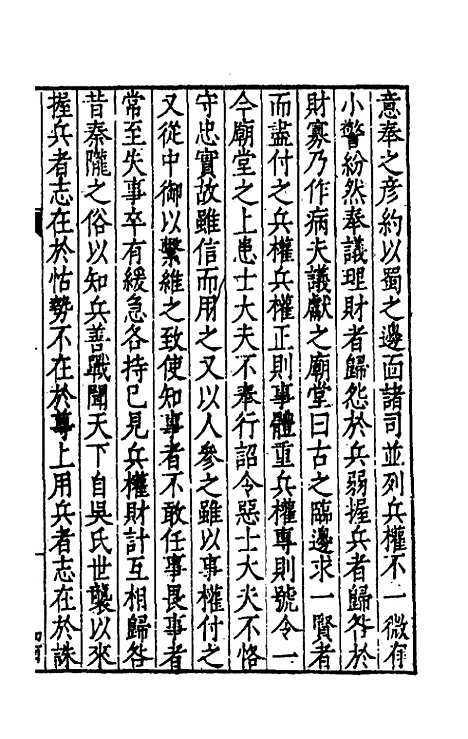 意奉之彦約以蜀之邊面諸司並列兵權不一微有
小警紛然奉議理財者歸怨於兵弱握兵者歸咎於
財寡乃作病夫議獻之廟堂曰古之臨邊求一賢者
而盡付之兵權兵權正則事體重兵權專則號令一
今廟堂之上患士大夫不奉行詔令惡士大夫不恪
守忠實故雖信而用之又以人參之雖以事權付之
又從中御以繫維之致使知事者不敢任事畏事者
常至失事卒有緩急各持已見兵權財計互相歸咎
昔秦隴之俗以知兵善戰聞天下自吳氏世襲以來
握兵者志在於怙勢不在於尊上用兵者志在於誅